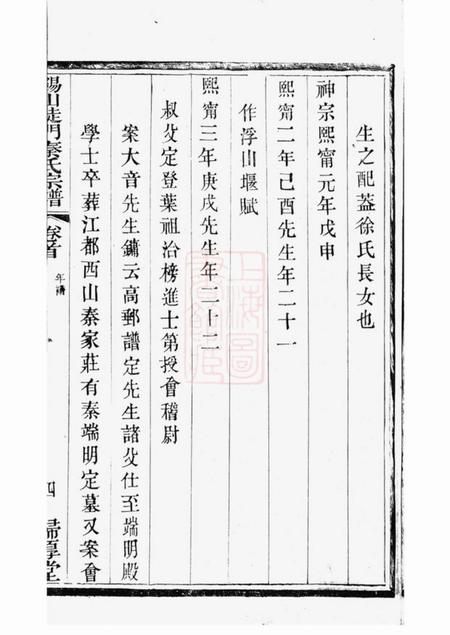 生之配蓋徐氏長女也
神宗熙甯元年戊申
熙甯二年己酉先生年二十一
作浮山堰賦
熙甯三年庚戌先生年二十二
叔父定登葉祖洽榜進士第授會稽尉
案大音先生鏞云高郵譜定先生諸父仕至端明殿
學士卒葬江都西山秦家莊有秦端明定墓又案會
錫山徒門秦氏宗譜
卷首
年譜
四
歸厚堂
上海圖